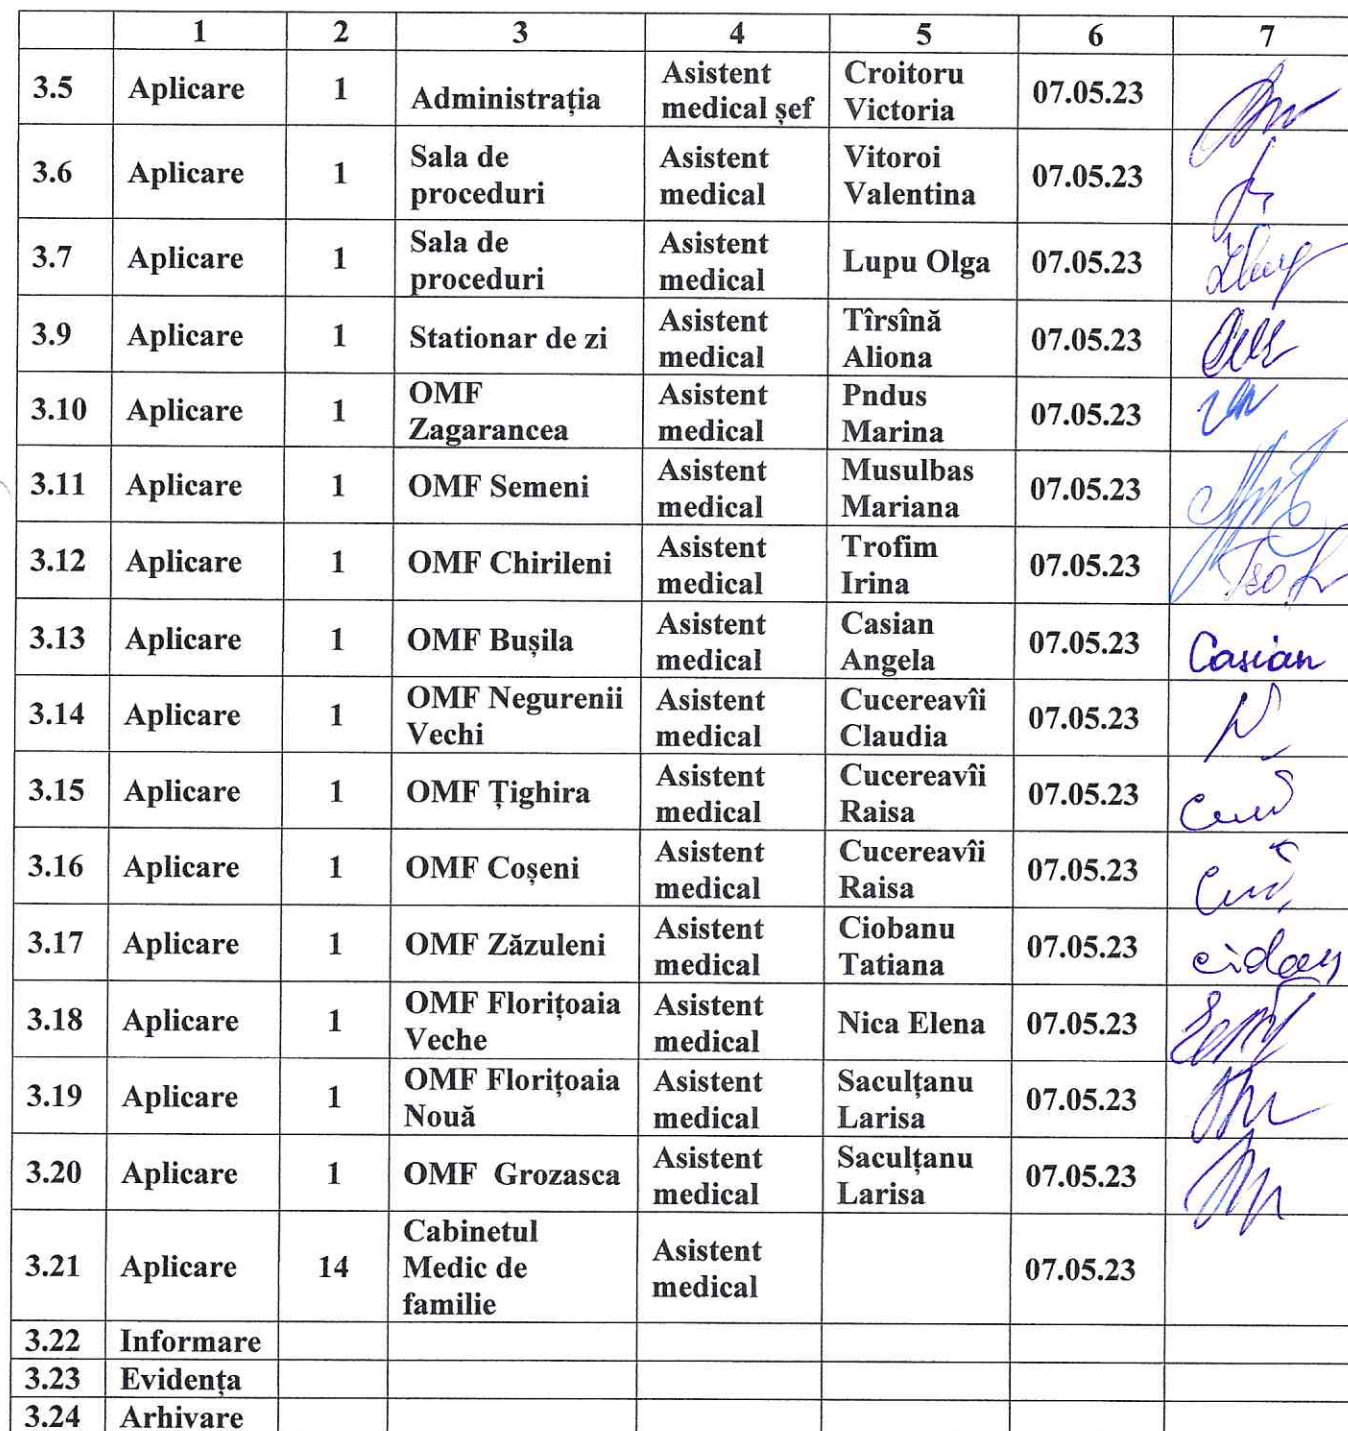 1 2 3 4 5 6 7
3.5 Aplicare 1 Administrația Asistent medical șef Croitoru Victoria 07.05.23
3.6 Aplicare 1 Sala de proceduri Asistent medical Vitoroi Valentina 07.05.23
3.7 Aplicare 1 Sala de proceduri Asistent medical Lupu Olga 07.05.23
3.9 Aplicare 1 Stationar de zi Asistent medical Tîrsînă Aliona 07.05.23
3.10 Aplicare 1 OMF Zagarancea Asistent medical Pndus Marina 07.05.23
3.11 Aplicare 1 OMF Semeni Asistent medical Musulbas Mariana 07.05.23
3.12 Aplicare 1 OMF Chirileni Asistent medical Trofim Irina 07.05.23
3.13 Aplicare 1 OMF Bușila Asistent medical Casian Angela 07.05.23 Casian
3.14 Aplicare 1 OMF Negurenii Vechi Asistent medical Cucereavîi Claudia 07.05.23
3.15 Aplicare 1 OMF Țighira Asistent medical Cucereavîi Raisa 07.05.23
3.16 Aplicare 1 OMF Coșeni Asistent medical Cucereavîi Raisa 07.05.23
3.17 Aplicare 1 OMF Zăzuleni Asistent medical Ciobanu Tatiana 07.05.23
3.18 Aplicare 1 OMF Florițoaia Veche Asistent medical Nica Elena 07.05.23
3.19 Aplicare 1 OMF Florițoaia Nouă Asistent medical Saculțanu Larisa 07.05.23
3.20 Aplicare 1 OMF Grozasca Asistent medical Saculțanu Larisa 07.05.23
3.21 Aplicare 14 Cabinetul Medic de familie Asistent medical 07.05.23
3.22 Informare
3.23 Evidența
3.24 Arhivare